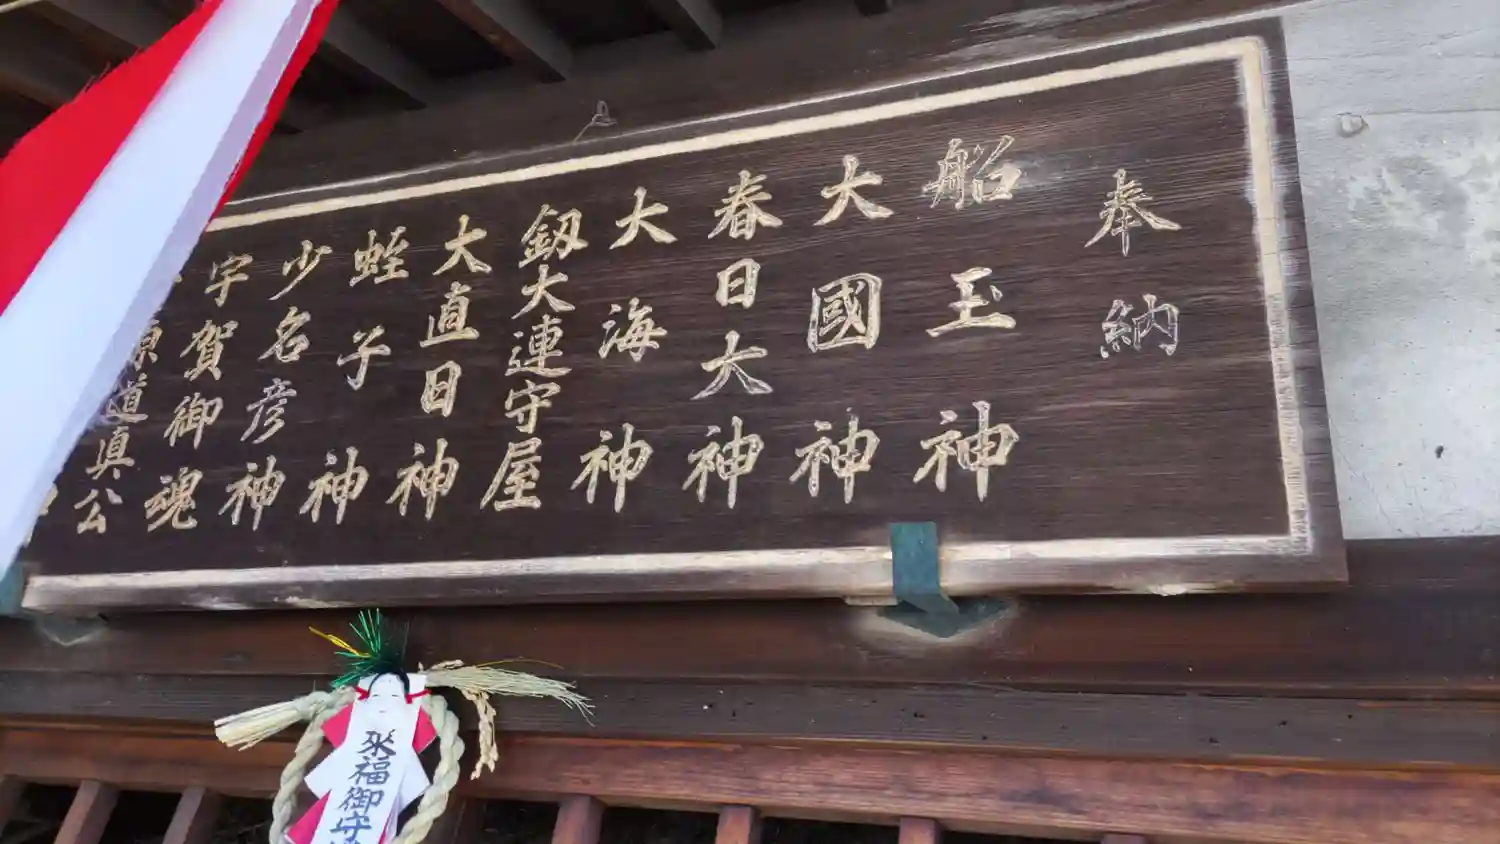 奉納
船玉神
大國神
春日大神
大海神
釼大連守屋
大直日神
蛭子神
少名彦神
宇賀御魂
原道真公
来福御守